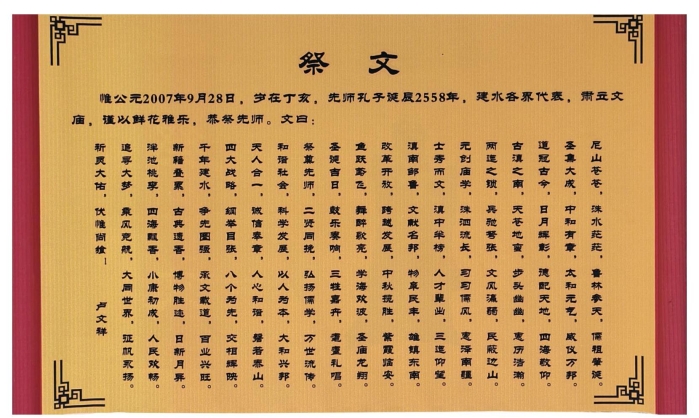 祭 文
惟公元2007年9月28日，岁在丁亥，先师孔子诞辰2558年，建水各界代表，肃立文
庙，谨以鲜花雅乐，恭祭先师。文曰：
尼山苍苍，洙水茫茫。鲁林参天，儒祖诞。
圣集大成，中和有章。太和元气，威仪万邦。
道冠古今，日月辉彰。德配天地，四海敬仰。
古滇之南，天苍地。步头幽幽，惠历浩瀚。
两迤之锁，兵弛学张。文风，民山。
元创庙学，洙泗流长。习习儒风，惠泽南疆。
士秀而文，滇中半榜。人才辈出，三迤仰望。
滇南邹鲁，文献名邦。物阜民丰，雄镇东南。
改革开放，跨越发展。中秋揽胜，紫霞临安。
鱼跃鸢飞，舞醉歌亮。学海欢波，圣庙龙翔。
圣诞吉日，鼓乐奏响。三牲嘉卉，礼唱。
祭奠先师，二贤同挽。弘扬儒学，万世流传。
和谐社会，科学发展。以人为本，大和兴邦。
天人合一，诚信奉章。人心和谐，磐若泰山。
四大战略，纲举目张。八个为先，交相辉映。
千年建水，争先图强。承文载道，百业兴旺。
新籍叠累，古典。博物胜迹，日新月异。
泮池桃李，四海飘香。小康初成，人民欢畅。
追大梦，乘风克兢。大同世界，征帆永扬。
祈灵大佑，伏惟尚飨！ 卢文祥